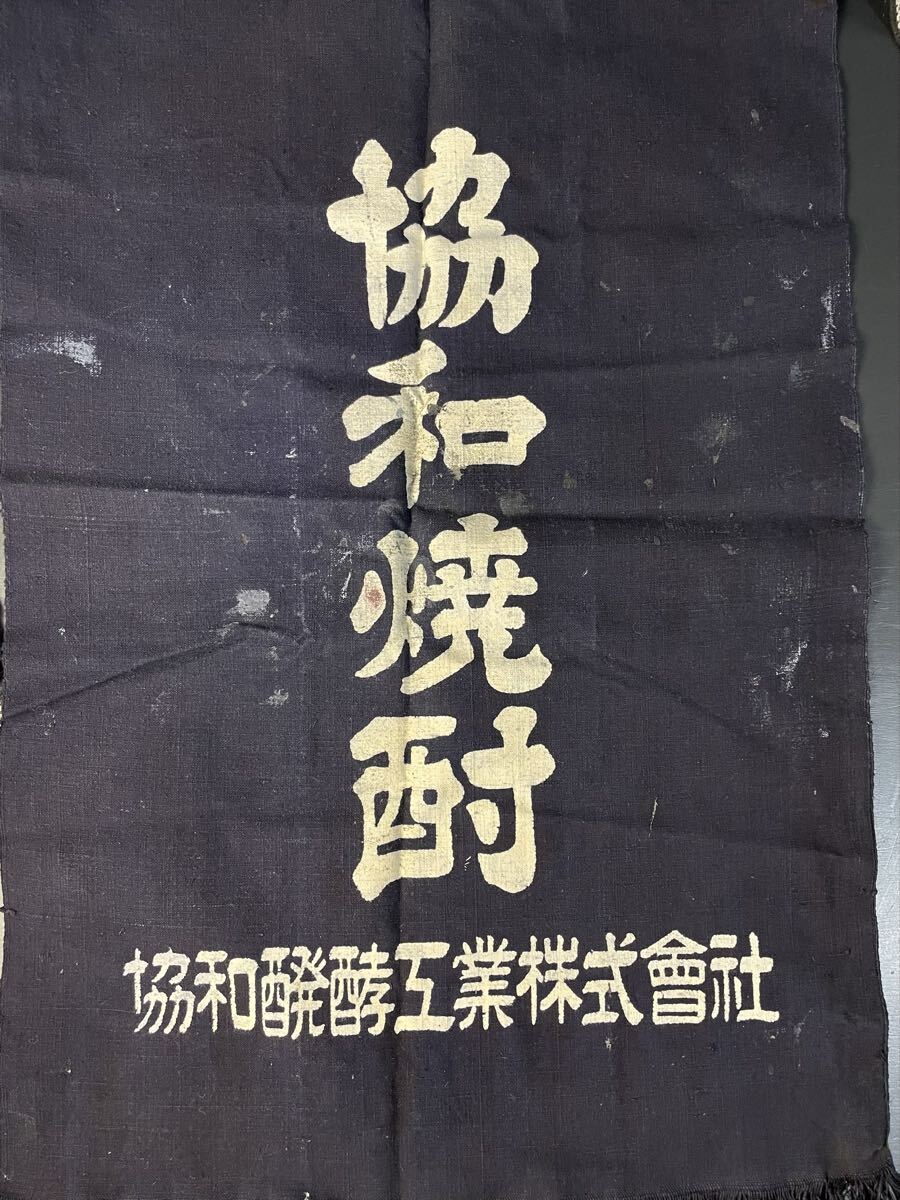 協和焼酎
協和醗酵工業株式會社